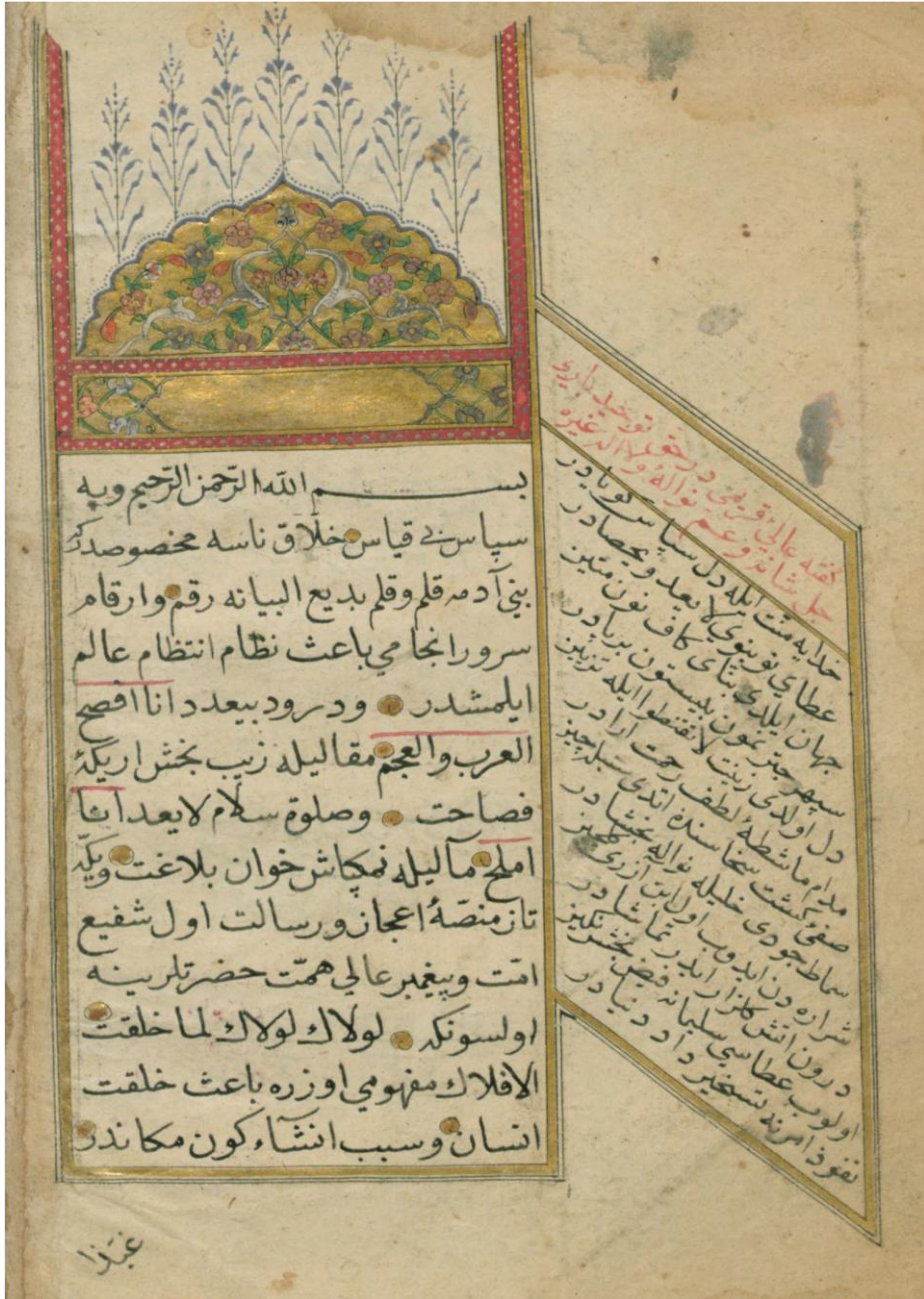 بسم الله الرّحمن الرّحيم وبه
سپاس بي قياس خلّاق ناسه مخصوصدركه
بني آدمه قلم وقلم بديع البيانه رقم وارقام
سرور انجامي باعث نظام انتظام عالم
ايلمشدر ودرود بيعدد انا افصح
العرب والعجم مقاليله زيب بخش اريكهٔ
فصاحت وصلوة سلام لايعد انا
املح مآليله نمكپاش خوان بلاغت ويكّه
تاز منصّهٔ اعجاز ورسالت اول شفيع
امّت وپيغمبر عالي همّت حضرتلرينه
اولسونكه لولاك لولاك لما خلقت
الافلاك مفهومي اوزره باعث خلقت
انسان وسبب انشآء كون مكاندر
گفته عالئ قريمى در حق توحيد بارى
جل شانه وعم نواله ولا اله غيره
خدايه منّت ايله دل سپاس گويادر
عطاى نوبنوى لايعد ويحصادر
جهان ايلدى بناى كاف نون متين
سپهر چتر نمون بيستون برپادر
دل اولدى زينت لاتقنطوا ايله تزيين
مدام ماشطهٔ لطف رحمت آرادر
سماط جودى خليله نواله بخشادر
شراره دن ايدوب اول ابن آزرى
درون آتش گلزار ايدر تماشادر
اولوب عطاسى سليمانه فيض بخش نگين
نفوذ امرينه تسخير داد دنيادر